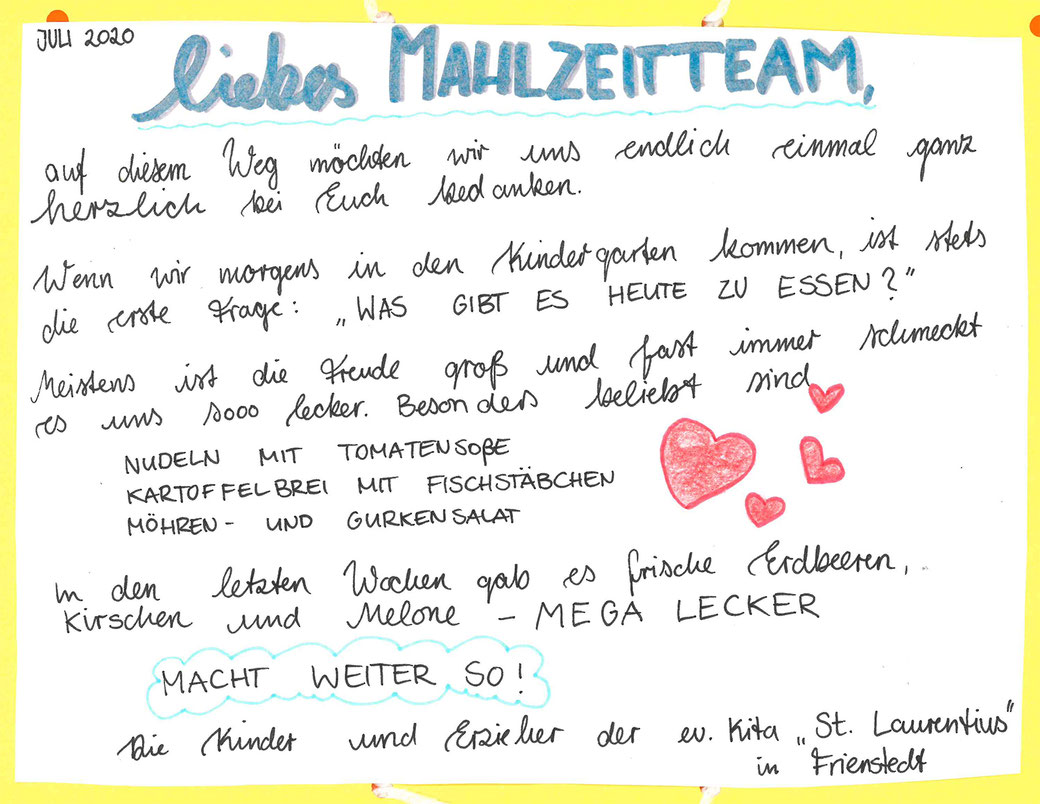 JULI 2020
liebes MAHLZEITTEAM,
auf diesem Weg möchten wir uns endlich einmal ganz
herzlich bei Euch bedanken.
Wenn wir morgens in den Kindergarten kommen, ist stets
die erste Frage: „WAS GIBT ES HEUTE ZU ESSEN?"
Meistens ist die Freude groß und fast immer schmeckt
es uns sooo lecker. Besonders beliebt sind
NUDELN MIT TOMATENSOßE
KARTOFFELBREI MIT FISCHSTÄBCHEN
MÖHREN- UND GURKENSALAT
In den letzten Wochen gab es frische Erdbeeren,
Kirschen und Melone – MEGA LECKER
MACHT WEITER SO!
Die Kinder und Erzieher der ev. Kita „St. Laurentius"
in Frienstedt